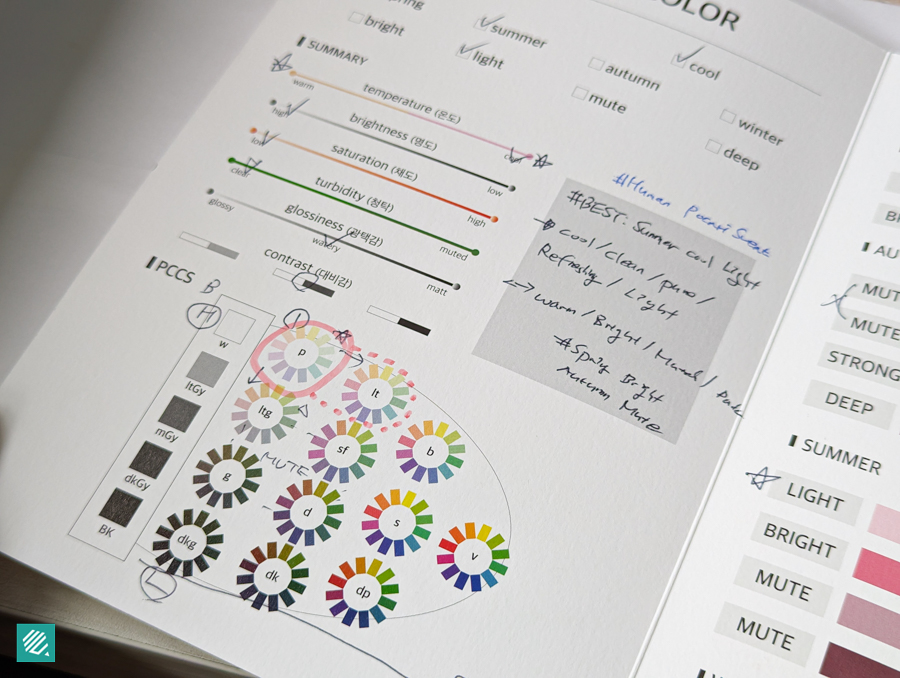 COLOR
bright
summer
light
cool
autumn
mute
winter
deep
SUMMARY
temperature (온도)
warm
brightness (명도)
high
low
saturation (채도)
low
high
turbidity (청탁)
clear
muted
glossiness (광택감)
glossy
watery
matt
contrast (대비감)
#Human Pocari Sweat
#BEST: Summer cool Light
cool / Clean / pure /
Refreshing / Light
Warm / Bright / Muted / Dark
#Spring Bright
Autumn Mute
PCCS
B
H
w
ltGy
mGy
dkGy
BK
p
lt
ltg
sf
b
MUTE
g
d
s
v
dkg
dk
dp
L
MUTE
STRONG
DEEP
SUMMER
LIGHT
BRIGHT
MUTE
MUTE